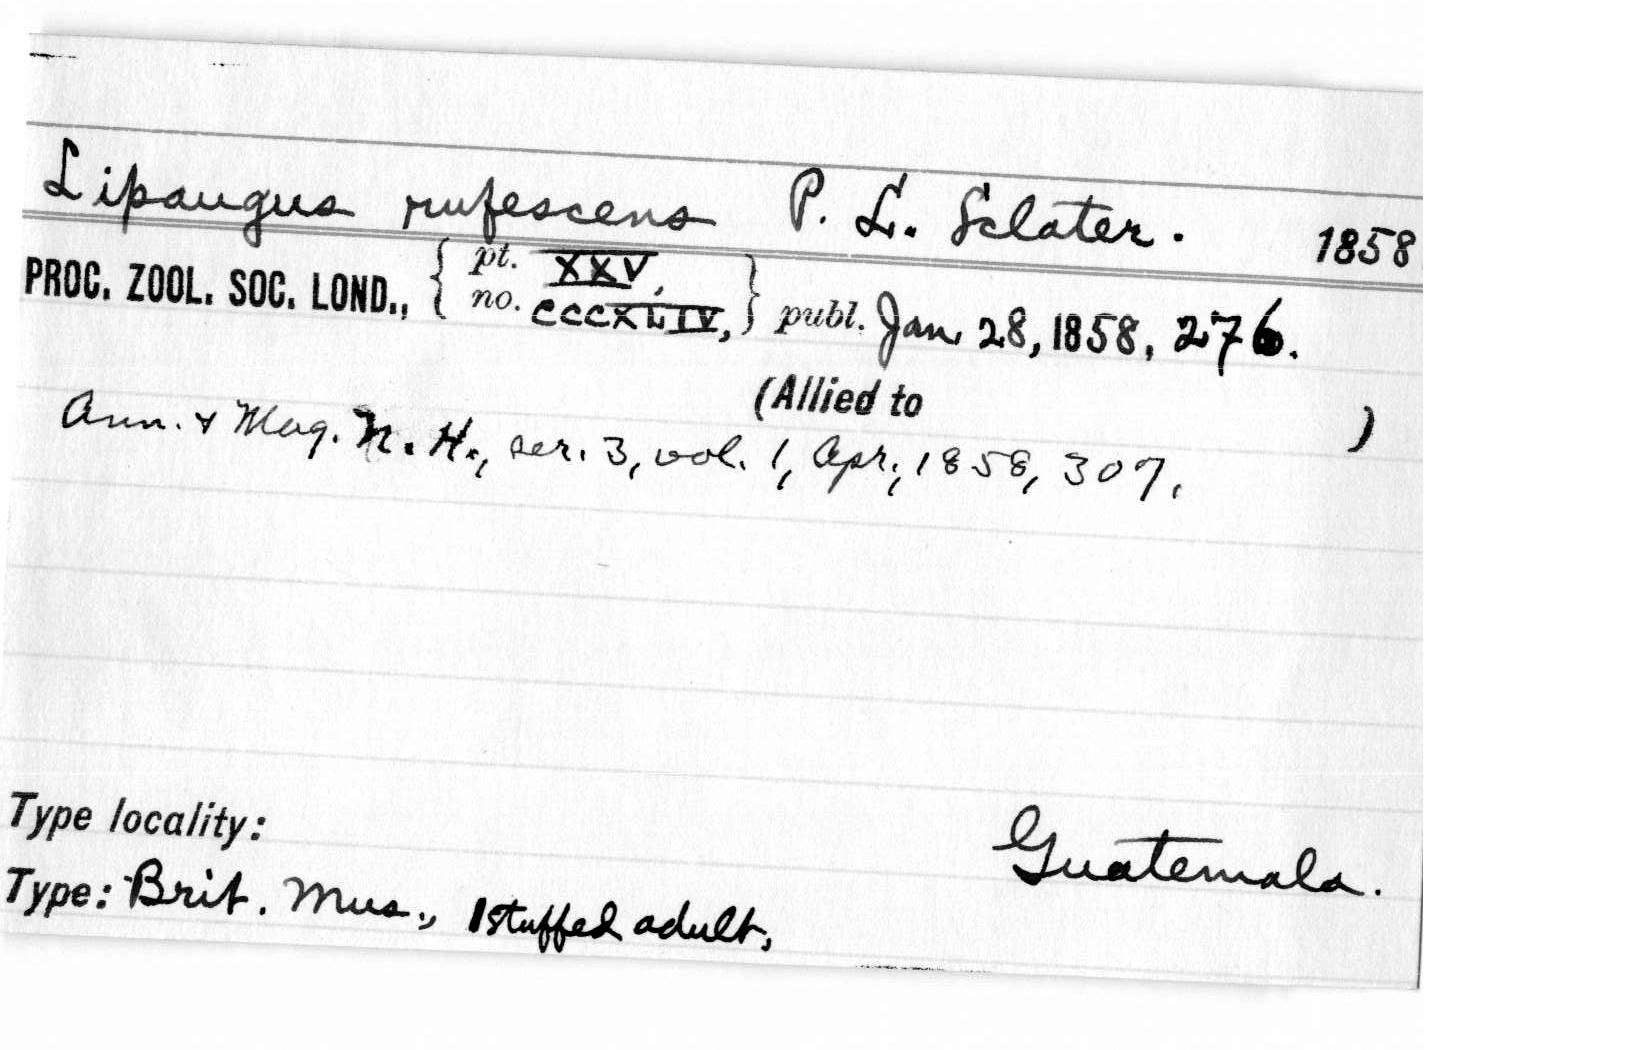 Lipaugus rufescens P. L. Sclater. 1858
PROC. ZOOL. SOC. LOND., { pt. XXV, no. CCCXLIV, } publ. Jan. 28, 1858, 276.
(Allied to )
Ann. & Mag. N. H., ser. 3, vol. 1, Apr., 1858, 307.
Type locality: Guatemala.
Type: Brit. Mus., 1 stuffed adult,